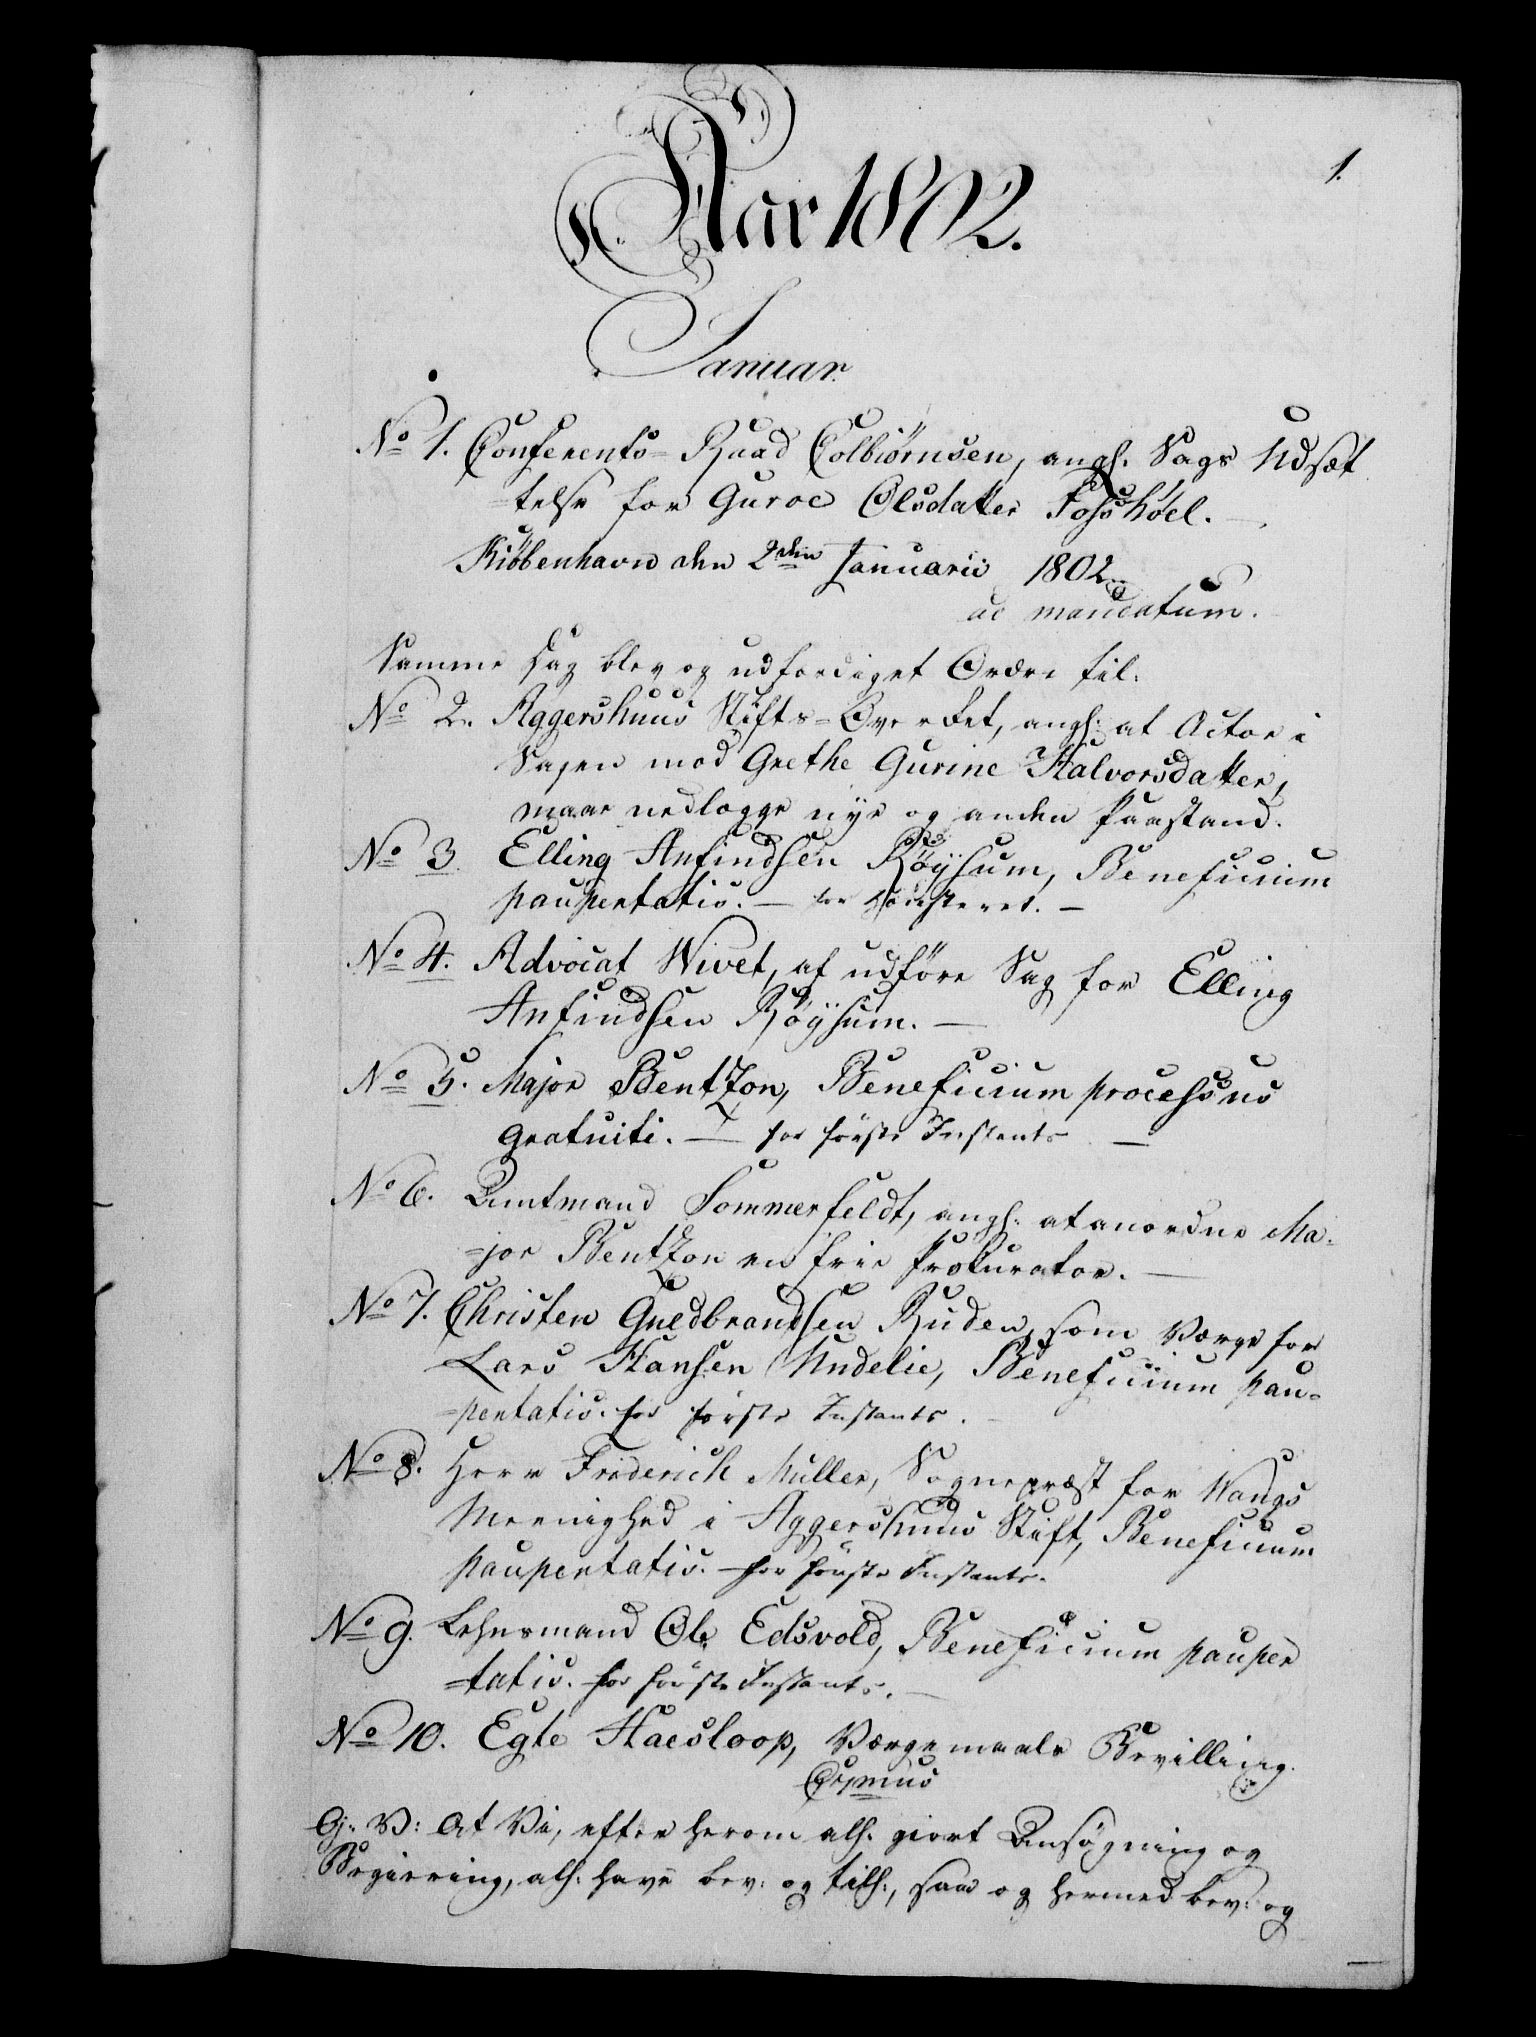 1.
Aar 1802.
Januar.
No 1. Conferents-Raad Colbiørnsen, angl. Sags Udsæt
=telse for Guroe Olsdatter Fosshøel.
Kiøbenhavn den 2den Januarii 1802.
ad mandatum.
Samme Dag blev og udfærdiget Ordre til:
No 2. Aggershuus Stifts-Øvr-ket, angl: at Actor i
Sagen mod Grethe Gurine Halvorsdatter,
maae nedlægge nye og anden Paastand.
No 3 Elling Anfindsen Røysum, Beneficium
paupertatis. — for Høiesteret. —
No 4. Advocat Wivet, at udføre Sag for Elling
Anfindsen Røysum. —
No 5. Major Bentzon, Beneficium processus
gratuiti. — for første Instants —
No 6. Amtmand Sommerfeldt, angl: at anordne Ma-
=jor Bentzon en frie Prokurator. —
No 7. Christen Guldbrandsen Ruden, som Værge for
Lars Hansen Undelie, Beneficium pau-
=pertatis. for første Instants. —
No 8. Herr Friderich Müller, Sognepræst for Wangs
Meenighed i Aggershuus Stift, Beneficium
paupertatis. — for første Instants.
No 9. Lehnsmand Ole Edsvold, Beneficium pauper
=tatis. for første Instants. —
No 10. Egte Haesloop, Værgemaals Bevilling.
G: V: At Vi, efter herom alh. giort Ansøgning og
Begiering, alh. have bev: og tilh:, saa og hermed bev: og